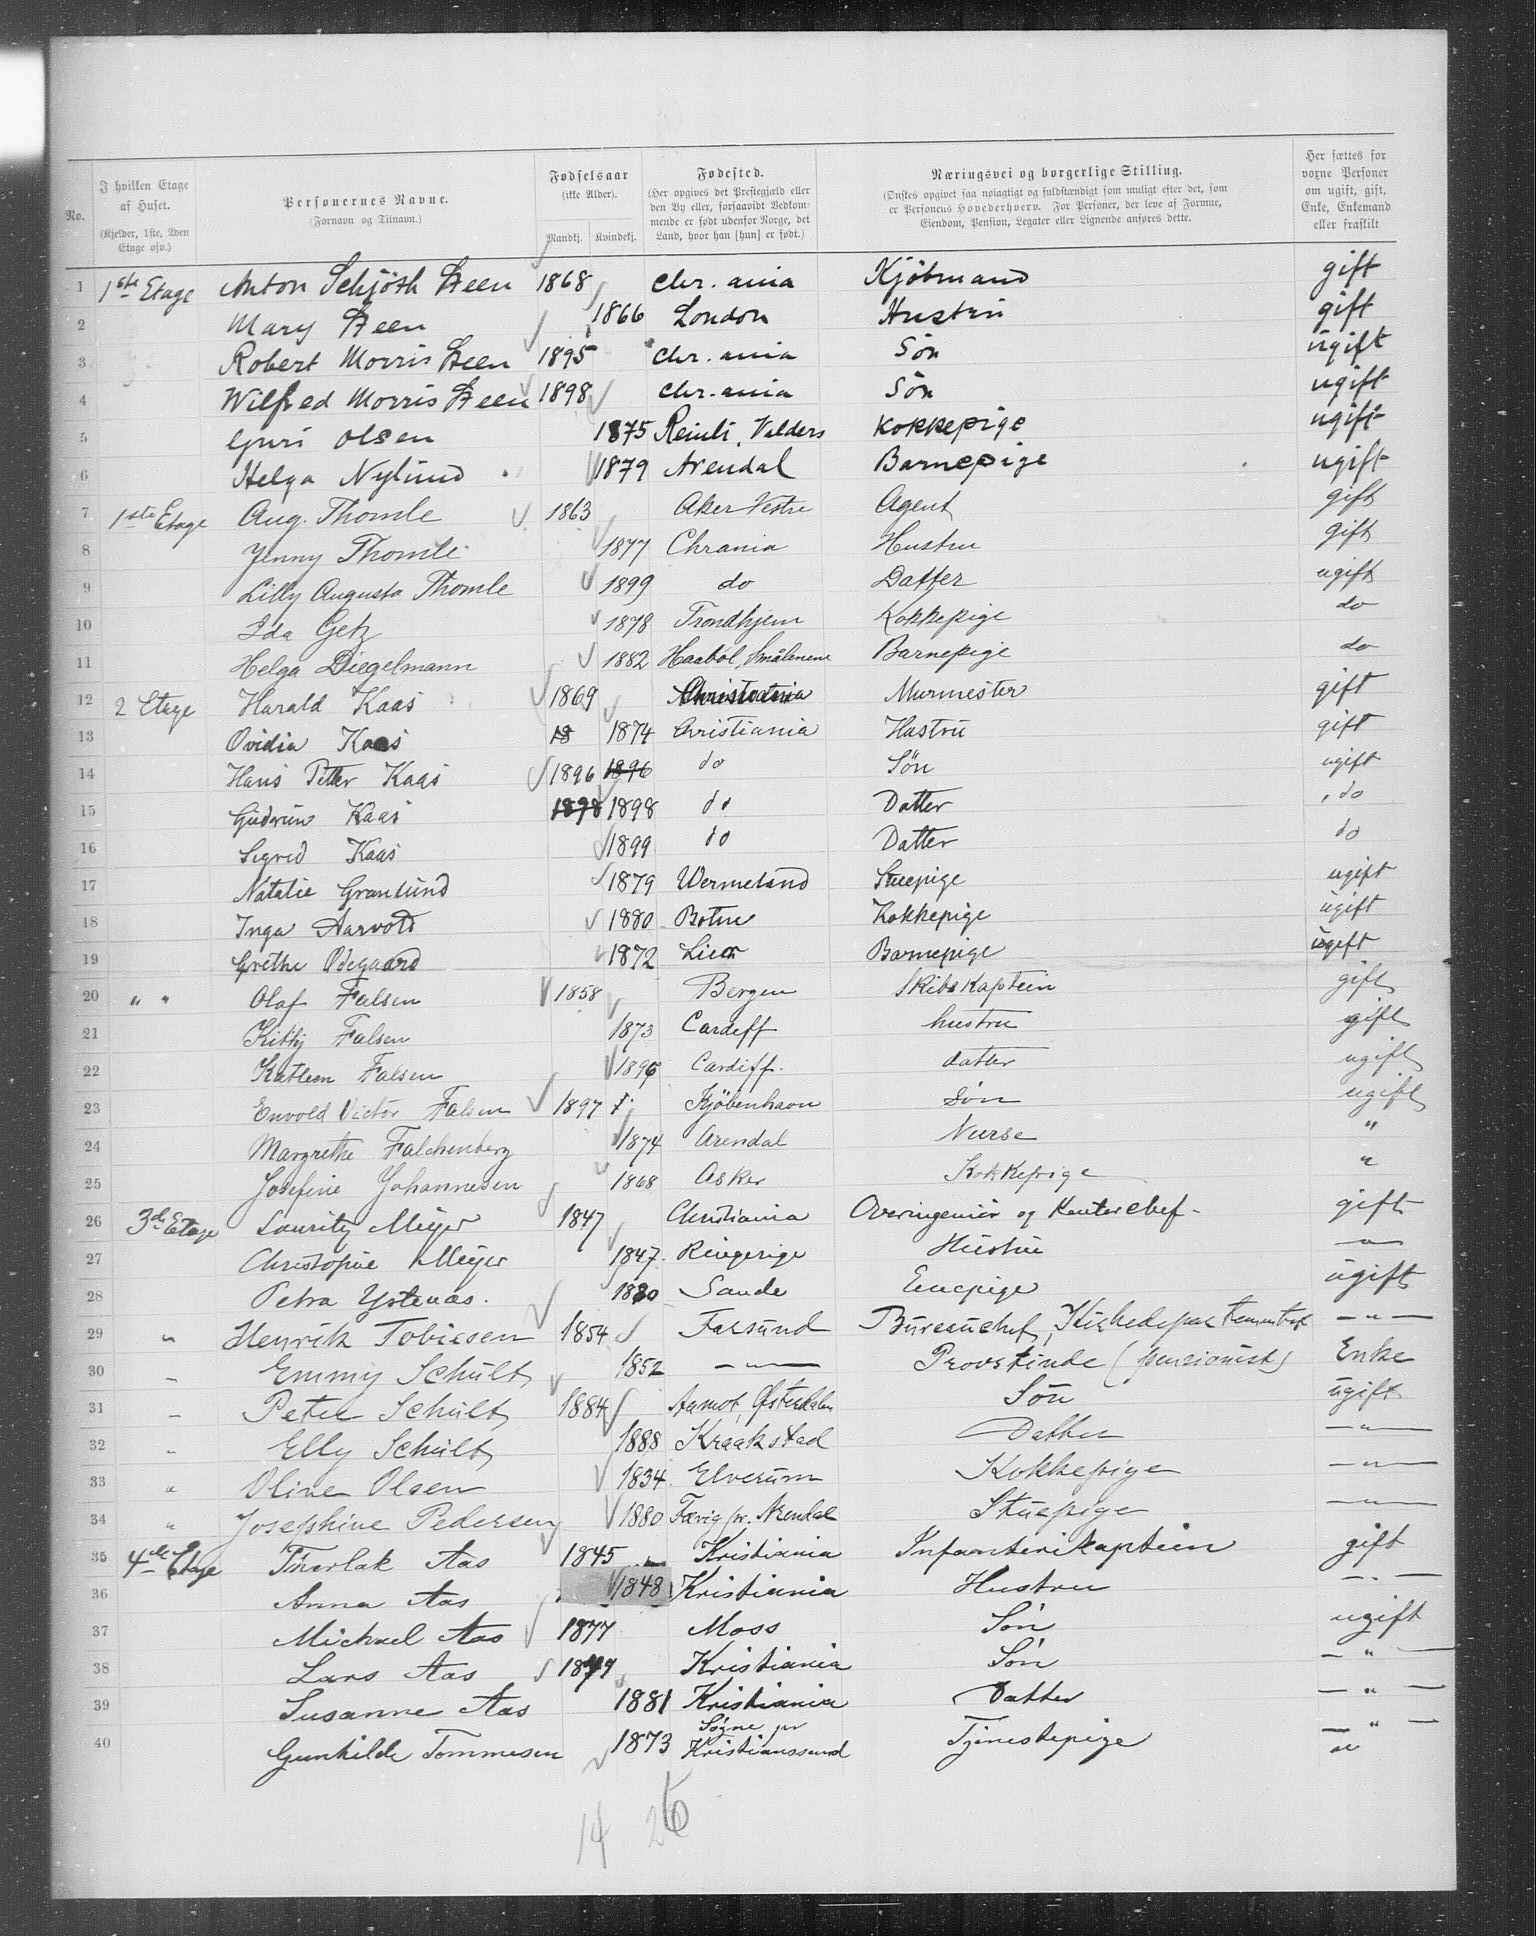 No.
I hvilken Etage af Huset. (Kjelder, 1ste, 2den Etage osv.)
Personernes Navne. (Fornavn og Tilnavn.)
Fødselsaar (ikke Alder). Mandkj. Kvindekj.
Fødested. (Her opgives det Prestegjæld eller den By eller, forsaavidt Vedkommende er født udenfor Norge, det Land, hvor han [hun] er født.)
Næringsvei og borgerlige Stilling. (Ønskes opgivet saa nøiagtigt og fuldstændigt som muligt efter det, som er Personens Hovederhverv. For Personer, der leve af Formue, Eiendom, Pension, Legater eller Lignende anføres dette.
Her sættes for voxne Personer om ugift, gift, Enke, Enkemand eller fraskilt
1 1ste Etage Anton Schjöth Steen 1868 Chr.ania Kjöbmand gift
2 Mary Steen 1866 London Hustru gift
3 Robert Morris Steen 1895 Chr.ania Sön ugift
4 Wilfred Morris Steen 1898 Chr.ania Sön ugift
5 Guri Olsen 1875 Reinli, Valders Kokkepige ugift
6 Helga Nylund 1879 Arendal Barnepige ugift
7 1ste Etage Aug. Thomle 1863 Aker Vestre Agent gift
8 Jenny Thomle 1877 Chrania Hustru gift
9 Lilly Augusta Thomle 1899 do Datter ugift
10 Ida Getz 1878 Trondhjem Kokkepige do
11 Helga Diegelmann 1882 Haabøl, Smålenene Barnepige do
12 2 Etage Harald Kaas 1869 Christiania Murmester gift
13 Ovidia Kaas 18 1874 Christiania Hustru gift
14 Hans Petter Kaas 1896 1896 do Sön ugift
15 Gudrun Kaas 1898 1898 do Datter do
16 Sigrid Kaas 1899 do Datter do
17 Natalie Granlund 1879 Wermeland Stuepige ugift
18 Inga Aarvold 1880 Botne Kokkepige ugift
19 Grethe Ødegaard 1872 Lier Barnepige ugift
20 " " Olaf Falsen 1858 Bergen Skibskaptein gift
21 Kitty Falsen 1873 Cardiff hustru gift
22 Katleen Falsen 1896 Cardiff. datter ugift
23 Envold Victor Falsen 1897 Kjöbenhavn Sön ugift
24 Margrethe Falchenberg 1874 Arendal Nurse "
25 Josefine Johannesen 1868 Asker Kokkepige "
26 3de Etage Lauritz Meyer 1847 Christiania Overingeniör og Kontorchef - gift
27 Christophine Meyer 1847. Ringerige Hustru — " —
28 Petra Ystenæs. 1880 Sande Enepige ugift
29 " Henrik Tobiesen 1854 Farsund Bureauchef, Kirkedepartementet — " —
30 " Emmy Schult 1852 — " — Provstinde (pensionist) Enke
31 " Peter Schult 1884 Aamot, Østerdalen Sön ugift
32 " Elly Schult 1888 Kraakstad Datter — " —
33 " Oline Olsen 1834 Elverum Kokkepige — " —
34 " Josephine Pedersen 1880 Færvig pr. Arendal Stuepige — " —
35 4de Etage Thorlak Aas 1845 Kristiania Infanterikaptein gift
36 Anna Aas 1848 Kristiania Hustru — " —
37 Michael Aas 1877 Moss Sön ugift
38 Lars Aas 1879 Kristiania Sön — " —
39 Susanne Aas 1881 Kristiania Datter — " —
40 Gunhilde Tommesen 1873 Søgne pr Kristianssand Tjenestepige — " —
"
14 26